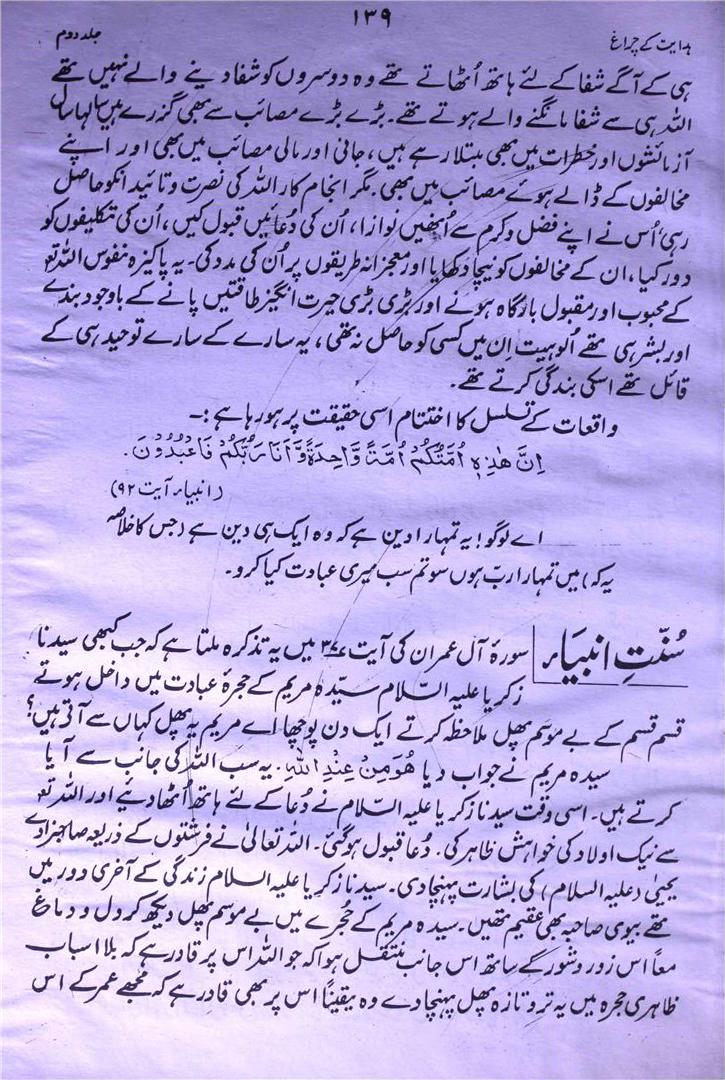 ہدایت کے چراغ ۱۳۹ جلد دوم
ہی کے آگے شفا کے لئے ہاتھ اُٹھاتے تھے وہ دوسروں کو شفا دینے والے نہیں تھے
اللہ ہی سے شفا مانگنے والے ہوتے تھے۔ بڑے بڑے مصائب سے بھی گزرے ہیں سالہا سال
آزمائشوں اور خطرات میں بھی مبتلا رہے ہیں، جانی اور مالی مصائب میں بھی اور اپنے
مخالفوں کے ڈالے ہوئے مصائب میں بھی۔ مگر انجام کار اللہ کی نصرت و تائید انکو حاصل
رہی، اُس نے اپنے فضل و کرم سے اُنھیں نوازا، اُن کی دُعائیں قبول کیں، اُن کی تکلیفوں کو
دور کیا، ان کے مخالفوں کو نیچا دکھایا اور معجزانہ طریقوں پر اُن کی مدد کی۔ یہ پاکیزہ نفوس اللہ تع
کے محبوب اور مقبول بارگاہ ہونے اور بڑی بڑی حیرت انگیز طاقتیں پانے کے باوجود بندے
اور بشر ہی تھے اُلوہیت اِن میں کسی کو حاصل نہ تھی، یہ سارے کے سارے توحید ہی کے
قائل تھے اسکی بندگی کرتے تھے۔
واقعات کے تسلسل کا اختتام اسی حقیقت پر ہو رہا ہے:۔
اِنَّ هٰذِهٖ اُمَّتُكُمْ اُمَّةً وَّاحِدَةً وَّاَنَا رَبُّكُمْ فَاعْبُدُوْنَ.
(انبیاء آیت ۹۲)
اے لوگو! یہ تمہارا دین ہے کہ وہ ایک ہی دین ہے (جس کا خلاصہ
یہ کہ) میں تمہارا ربّ ہوں سو تم سب میری عبادت کیا کرو۔
سُنّتِ انبیاء سورۂ آل عمران کی آیت ۳۷ میں یہ تذکرہ ملتا ہے کہ جب کبھی سیدنا
زکریا علیہ السّلام سیّدہ مریم کے حجرۂ عبادت میں داخل ہوتے
قسم قسم کے بے موسم پھل ملاحظہ کرتے ایک دن پوچھا اے مریم یہ پھل کہاں سے آتی ہیں؟
سیدہ مریم نے جواب دیا هُوَ مِنْ عِنْدِ اللّٰهِ. یہ سب اللہ کی جانب سے آیا
کرتے ہیں۔ اسی وقت سیدنا زکریا علیہ السّلام نے دُعا کے لئے ہاتھ اُٹھا دئیے اور اللہ تع
سے نیک اولاد کی خواہش ظاہر کی۔ دُعا قبول ہو گئی۔ اللہ تعالیٰ نے فرشتوں کے ذریعہ صاحبزادے
یحییٰ (علیہ السلام) کی بشارت پہنچا دی۔ سیدنا زکریا علیہ السلام زندگی کے آخری دور میں
تھے بیوی صاحبہ بھی عقیم تھیں۔ سیدہ مریم کے حُجرے میں بے موسم پھل دیکھ کر دل و دماغ
معاً اس زور و شور کے ساتھ اس جانب منتقل ہوا کہ جو اللہ اس پر قادر ہے کہ بلا اسباب
ظاہری حجرہ میں یہ تر و تازہ پھل پہنچا دے وہ یقیناً اس پر بھی قادر ہے کہ مجھے عمر کے اس